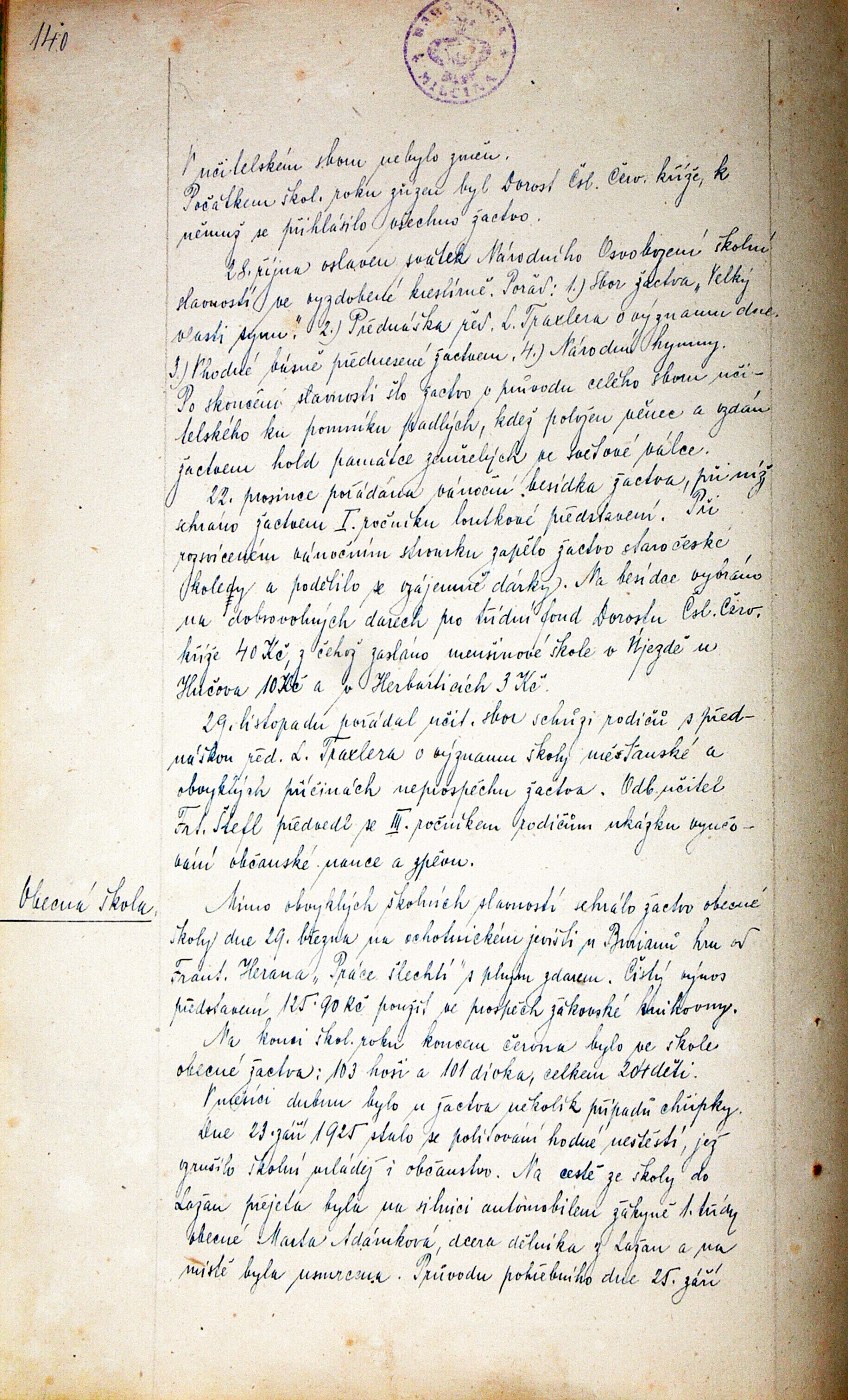 140
RADA MĚSTA
MILČINA
V učitelském sboru nebylo změn.
Počátkem škol. roku zřízen byl Dorost Čsl. Červ. kříže, k
němuž se přihlásilo všechno žactvo.
28. října oslaven svátek Národního Osvobození školní
slavností ve vyzdobené kreslírně. Pořad: 1.) Sbor žactva „Velký
vlasti synu". 2.) Přednáška řed. L. Traxlera o významu dne.
3.) Vhodné básně přednesené žactvem. 4.) Národní hymny.
Po skončení slavnosti šlo žactvo v průvodu celého sboru uči-
telského ku pomníku padlých, kdež položen věnec a vzdán
žactvem hold památce zemřelých ve světové válce.
22. prosince pořádána vánoční besídka žactva, při níž
sehráno žactvem I. ročníku loutkové představení. Při
rozsvíceném vánočním stromku zapělo žactvo staročeské
koledy a podělilo se vzájemně dárky. Na besídce vybráno
na dobrovolných darech pro třídní fond Dorostu Čsl. Červ.
kříže 40 Kč, z čehož zasláno menšinové škole v Újezdě u
Hučova 10 Kč a v Herbarticích 3 Kč.
29. listopadu pořádal učit. sbor schůzi rodičů s před-
náškou řed. L. Traxlera o významu školy měšťanské a
obvyklých příčinách neprospěchu žactva. Odb. učitel
Frt. Štefl předvedl se III. ročníkem rodičům ukázku vyučo-
vání občanské nauce a zpěvu.
Obecná škola.
Mimo obvyklých školních slavností sehrálo žactvo obecné
školy dne 29. března na ochotnickém jevišti u Burianů hru od
Frant. Herana „Práce šlechtí" s plným zdarem. Čistý výnos
představení 125·90 Kč použit ve prospěch žákovské knihovny.
Na konci škol. roku koncem června bylo ve škole
obecné žactva: 103 hoši a 101 dívka, celkem 204 dětí.
V měsíci dubnu bylo u žactva několik případů chřipky.
Dne 23. září 1925 stalo se politování hodné neštěstí, jež
vzrušilo školní mládež i občanstvo. Na cestě ze školy do
Lažan přejeta byla na silnici automobilem žákyně 1. třídy
obecné Marta Adámková, dcera dělníka z Lažan a na
místě byla usmrcena. Průvodu pohřebního dne 25. září